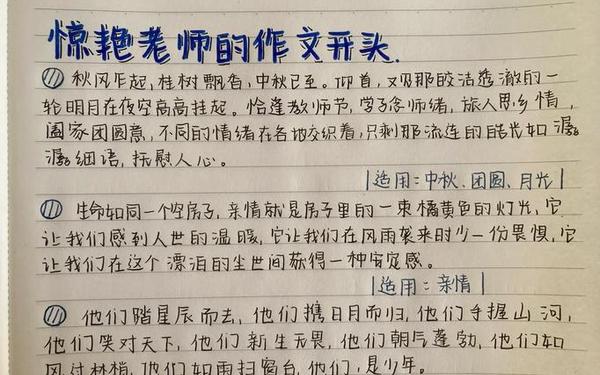 惊艳老师的作文开头.
秋风乍起,桂树飘香,中秋已至。仰首,又见那皎洁透澈的一
轮明月在夜空高高挂起。恰逢教师节,学子念师绪,旅人思乡情,
阖家团圆意,不同的情绪在各地交织着,只剩那流连的月光如潺
潺细语,抚慰人心。
适用:中秋、团圆、月光
生命如同一个空房子,亲情就是房子里的一束橘黄色的灯光,它
让我们感到人世的温暖,它让我们在风雨袭来时少一份畏惧,它
让我们在这个漂泊的尘世间获得一种安定感。
适用:亲情
他们踏星辰而去,他们携日月而归,他们手握山河,
他们笑对天下,他们新生无畏,他们朝气蓬勃,他们如
风过林梢,他们如雨扫窗台,他们,是少年。